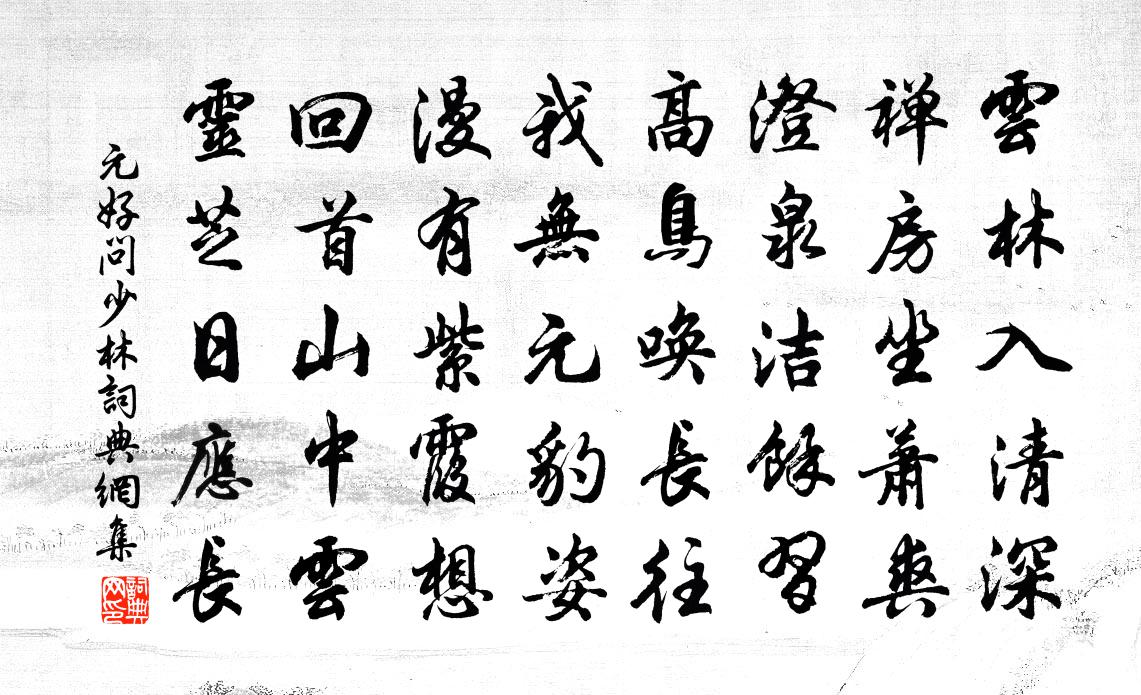 雲林入清深
禅房坐蕭爽
澄泉潔餘習
高鳥喚長往
我無元豹姿
漫有紫霞想
回首山中雲
靈芝日應長
元好問少林詞典網集
詞典网印